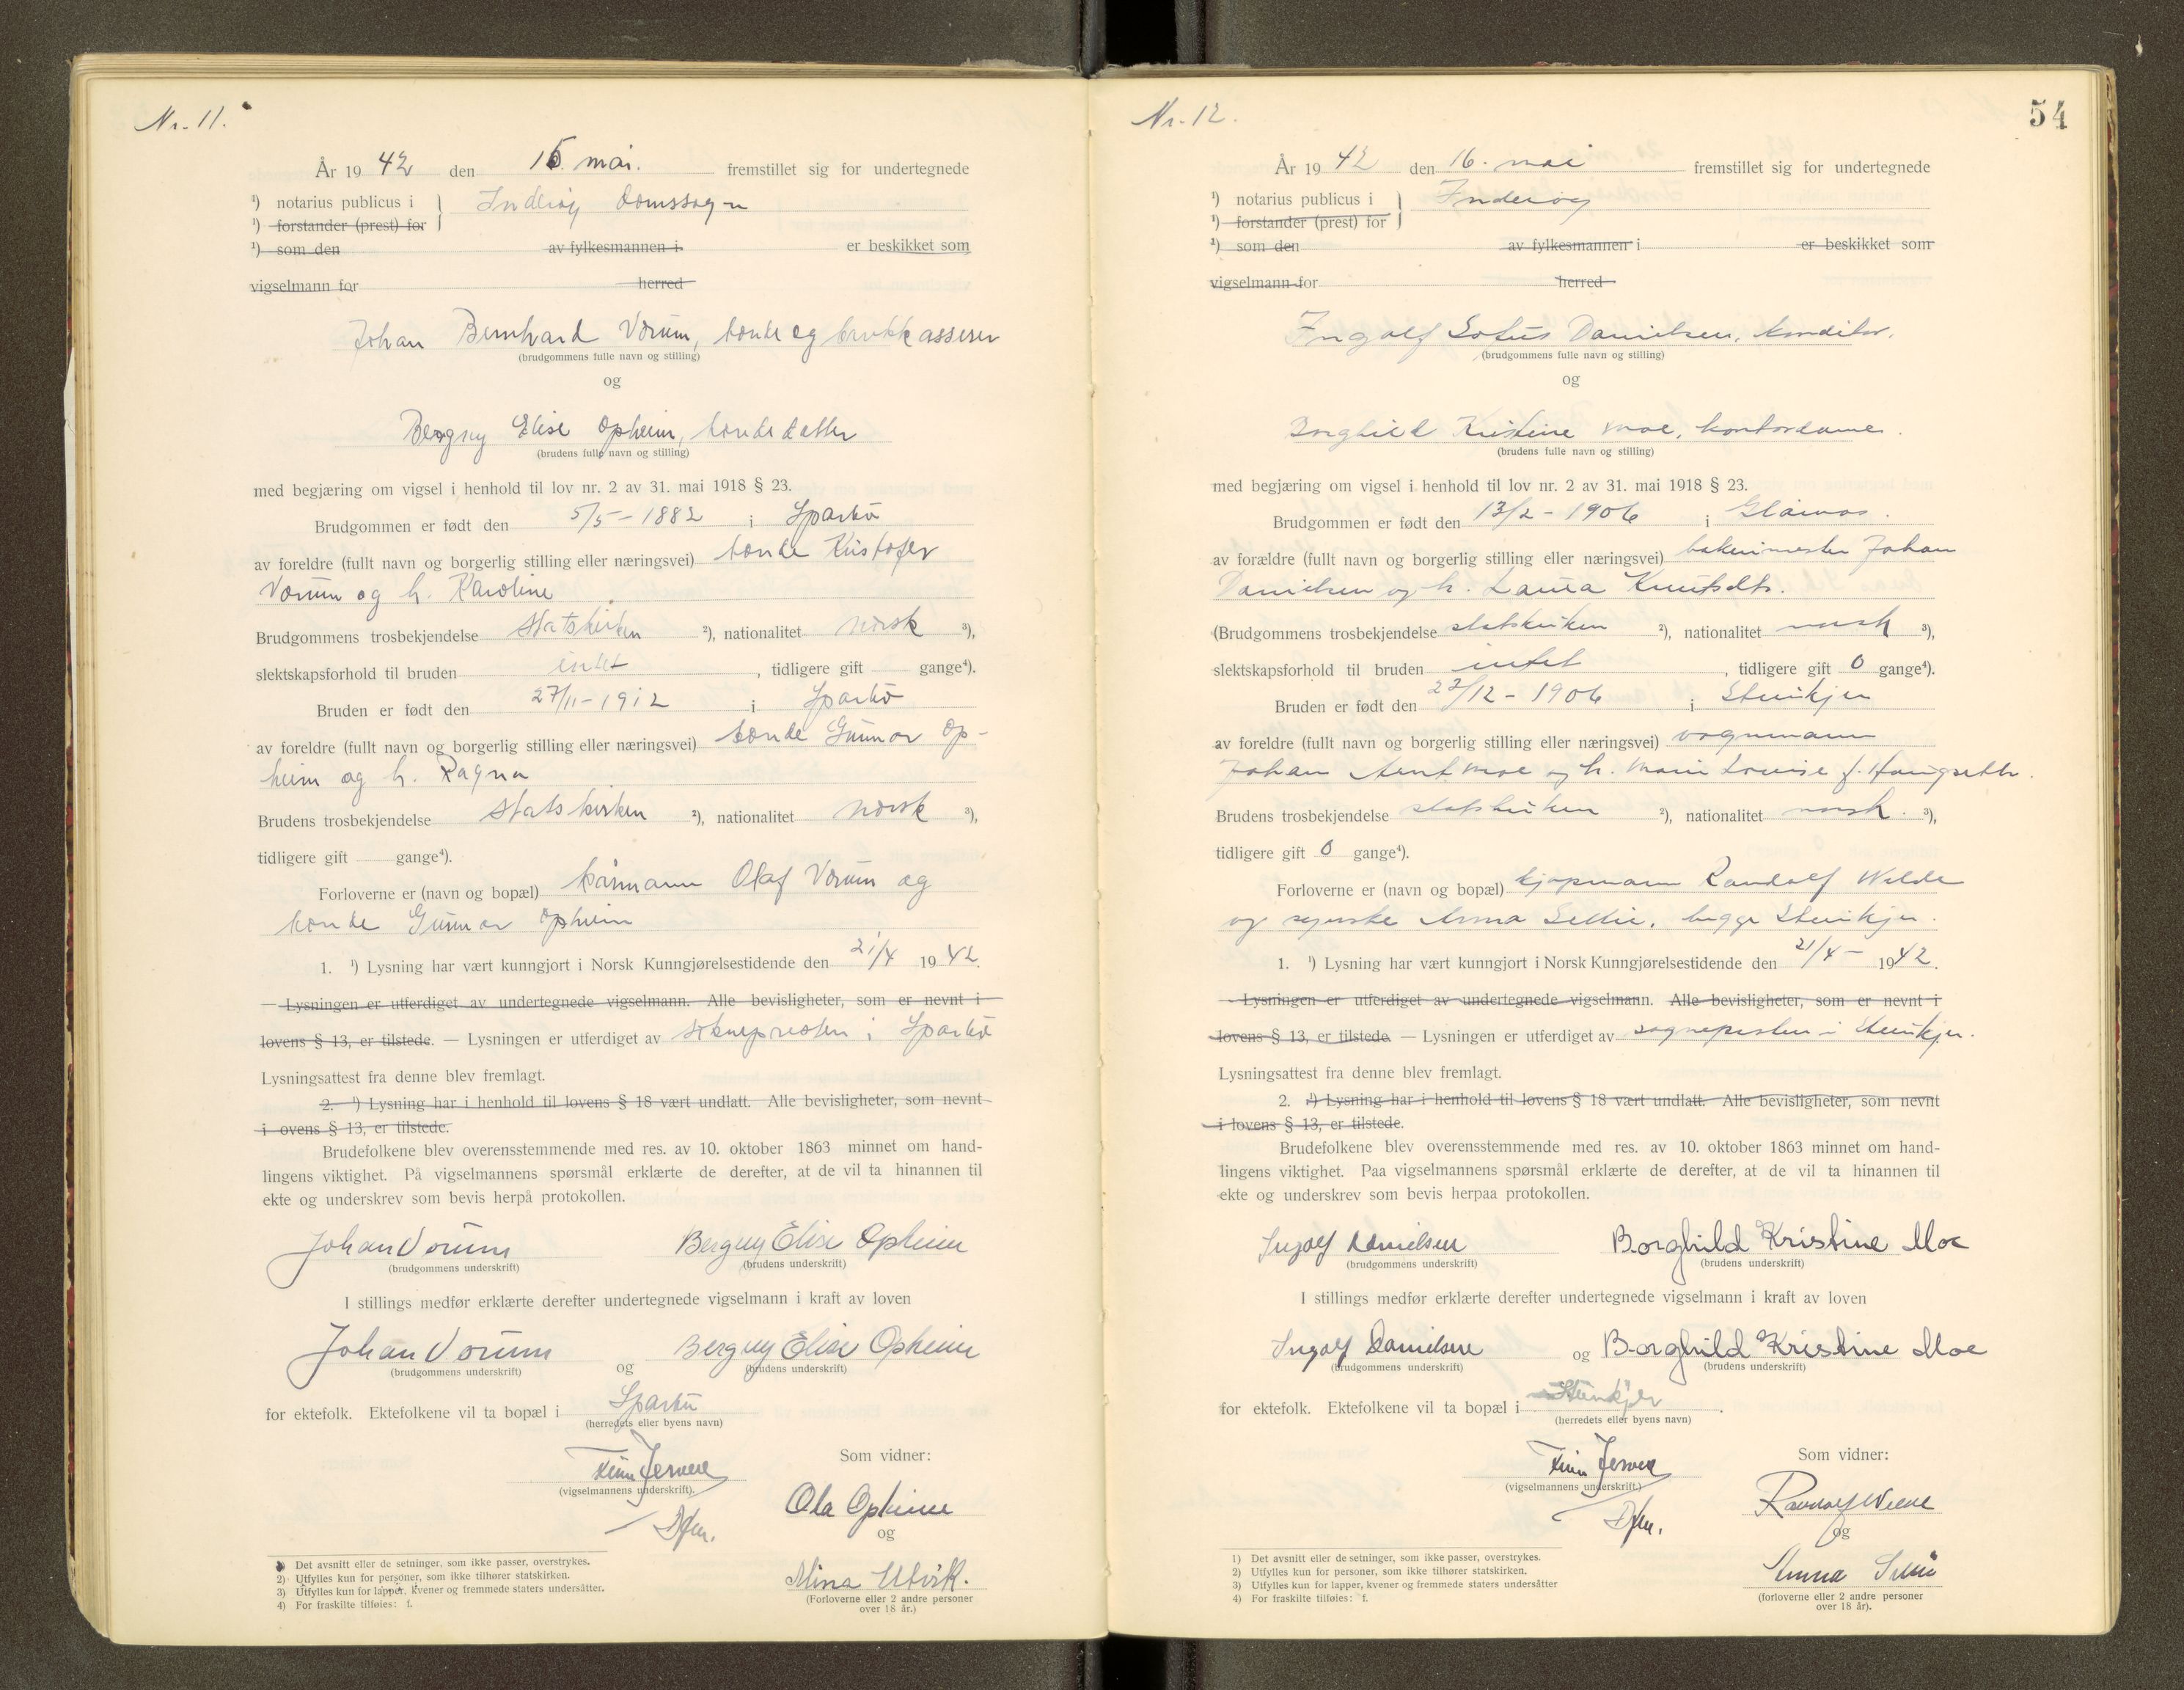 Nr. 11.
År 19 42 den 15. mai. fremstillet sig for undertegnede
¹) notarius publicus i } Inderøy domssogn
¹) forstander (prest) for
¹) som den av fylkesmannen i er beskikket som
vigselmann for herred
Johan Bernhard Vorum, bonde og brukkasserer
(brudgommens fulle navn og stilling)
og
Bergny Elise Opheim, bondedatter
(brudens fulle navn og stilling)
med begjæring om vigsel i henhold til lov nr. 2 av 31. mai 1918 § 23.
Brudgommen er født den 5/5 - 1882 i Sparbu
av foreldre (fullt navn og borgerlig stilling eller næringsvei) bonde Kristofer
Vorum og h. Karoline
Brudgommens trosbekjendelse statskirken ²), nationalitet norsk ³),
slektskapsforhold til bruden intet , tidligere gift gange⁴).
Bruden er født den 27/11 - 1912 i Sparbu
av foreldre (fullt navn og borgerlig stilling eller næringsvei) bonde Gunnar Op-
heim og h. Ragna
Brudens trosbekjendelse statskirken ²), nationalitet norsk ³),
tidligere gift gange⁴).
Forloverne er (navn og bopæl) kårmann Olaf Vorum og
bonde Gunnar Opheim
1. ¹) Lysning har vært kunngjort i Norsk Kunngjørelsestidende den 21/4 1942.
— Lysningen er utferdiget av undertegnede vigselmann. Alle bevisligheter, som er nevnt i
lovens § 13, er tilstede. — Lysningen er utferdiget av soknepresten i Sparbu
Lysningsattest fra denne blev fremlagt.
2. ¹) Lysning har i henhold til lovens § 18 vært undlatt. Alle bevisligheter, som nevnt
i ovens § 13, er tilstede.
Brudefolkene blev overensstemmende med res. av 10. oktober 1863 minnet om hand-
lingens viktighet. På vigselmannens spørsmål erklærte de derefter, at de vil ta hinannen til
ekte og underskrev som bevis herpå protokollen.
Johan Vorum Bergny Elise Opheim
(brudgommens underskrift) (brudens underskrift)
I stillings medfør erklærte derefter undertegnede vigselmann i kraft av loven
Johan Vorum og Bergny Elise Opheim
(brudgommens underskrift) (brudens underskrift)
for ektefolk. Ektefolkene vil ta bopæl i Sparbu
(herredets eller byens navn)
Som vidner:
Finn Jervell
(vigselmannens underskrift).
Dfm.
Ola Opheim
og
Mina Utvik.
(Forloverne eller 2 andre personer
over 18 år.)
1) Det avsnitt eller de setninger, som ikke passer, overstrykes.
2) Utfylles kun for personer, som ikke tilhører statskirken.
3) Utfylles kun for lapper, kvener og fremmede staters undersåtter.
4) For fraskilte tilføies: f.
Nr. 12.
54
År 19 42 den 16. mai fremstillet sig for undertegnede
¹) notarius publicus i } Inderøy
¹) forstander (prest) for
¹) som den av fylkesmannen i er beskikket som
vigselmann for herred
Ingolf Sofus Danielsen, konditor.
(brudgommens fulle navn og stilling)
og
Borghild Kristine Moe, kontordame.
(brudens fulle navn og stilling)
med begjæring om vigsel i henhold til lov nr. 2 av 31. mai 1918 § 23.
Brudgommen er født den 13/2 - 1906 i Glåmos.
av forældre (fullt navn og borgerlig stilling eller næringsvei) bakermester Johan
Danielsen og h. Laura Knutsdtr.
(Brudgommens trosbekjendelse statskirken ²), nationalitet norsk ³),
slektskapsforhold til bruden intet , tidligere gift 0 gange⁴).
Bruden er født den 27/12 - 1906 i Steinkjer
av foreldre (fullt navn og borgerlig stilling eller næringsvei) vognmann
Johan Arnt Moe og h. Marie Louise f. Haugseth.
Brudens trosbekjendelse statskirken ²), nationalitet norsk. ³),
tidligere gift 0 gange⁴).
Forloverne er (navn og bopæl) kjøpmann Randolf Welde
og syerske Anna Selli, begge Steinkjer.
1. ¹) Lysning har vært kunngjort i Norsk Kunngjørelsestidende den 21/4 - 1942.
- Lysningen er utferdiget av undertegnede vigselmann. Alle bevisligheter, som er nevnt i
lovens § 13, er tilstede. — Lysningen er utferdiget av sognepresten i Steinkjer.
Lysningsattest fra denne blev fremlagt.
2. ¹) Lysning har i henhold til lovens § 18 vært undlatt. Alle bevisligheter, som nevnt
i lovens § 13, er tilstede.
Brudefolkene blev overensstemmende med res. av 10. oktober 1863 minnet om hand-
lingens viktighet. Paa vigselmannens spørsmål erklærte de derefter, at de vil ta hinannen til
ekte og underskrev som bevis herpaa protokollen.
Ingolf Danielsen Borghild Kristine Moe
(brudgommens underskrift) (brudens underskrift)
I stillings medfør erklærte derefter undertegnede vigselmann i kraft av loven
Ingolf Danielsen og Borghild Kristine Moe
(brudgommens underskrift) (brudens underskrift)
for ektefolk. Ektefolkene vil ta bopæl i Steinkjer.
(herredets eller byens navn)
Som vidner:
Finn Jervell
(vigselmannens underskrift.)
Dfm.
Randolf Welde
og
Anna Selli
(forloverne eller 2 andre personer
over 18 år).
1) Det avsnitt eller de setninger, som ikke passer, overstrykes.
2) Utfylles kun for personer, som ikke tilhører statskirken.
3) Utfylles kun for lapper, kvener og fremmede staters undersåtter
4) For fraskilte tilføies: f.